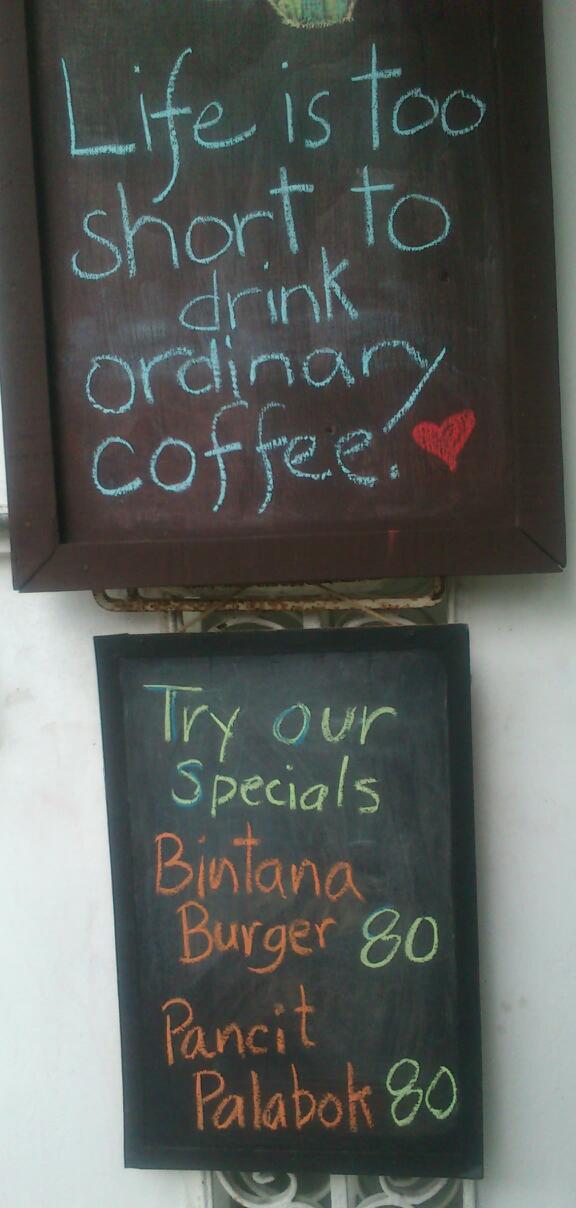 Life is too
short to
drink
ordinary
coffee!
Try our
Specials
Bintana
Burger 80
Pancit
Palabok 80